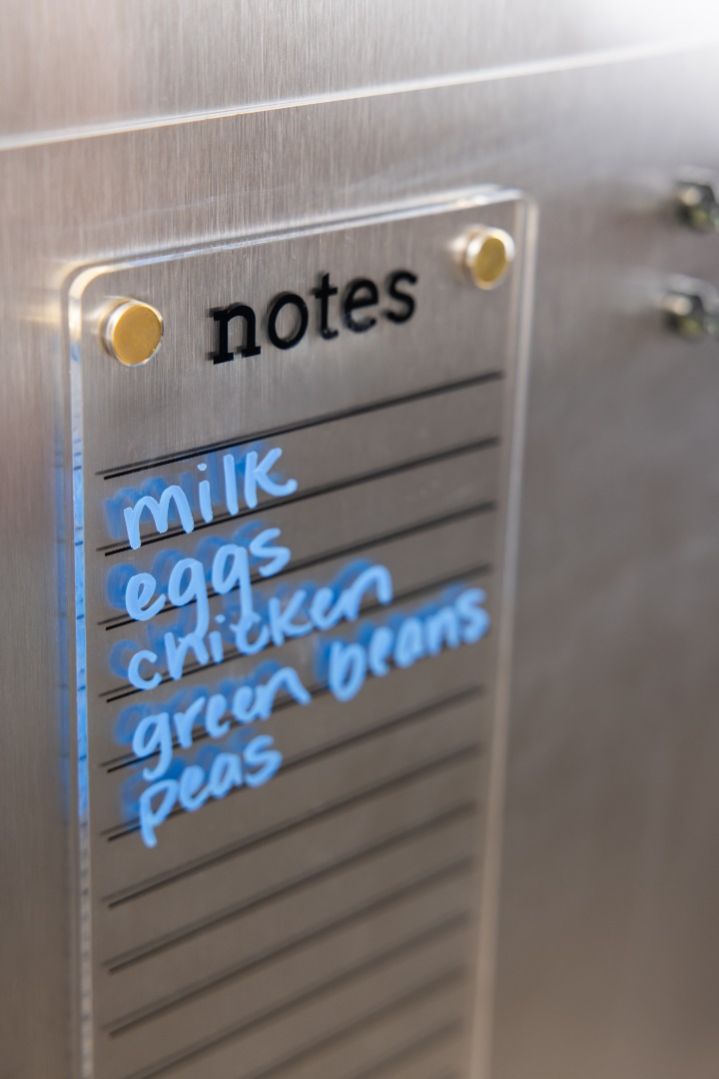 notes
milk
eggs
chicken
green beans
peas